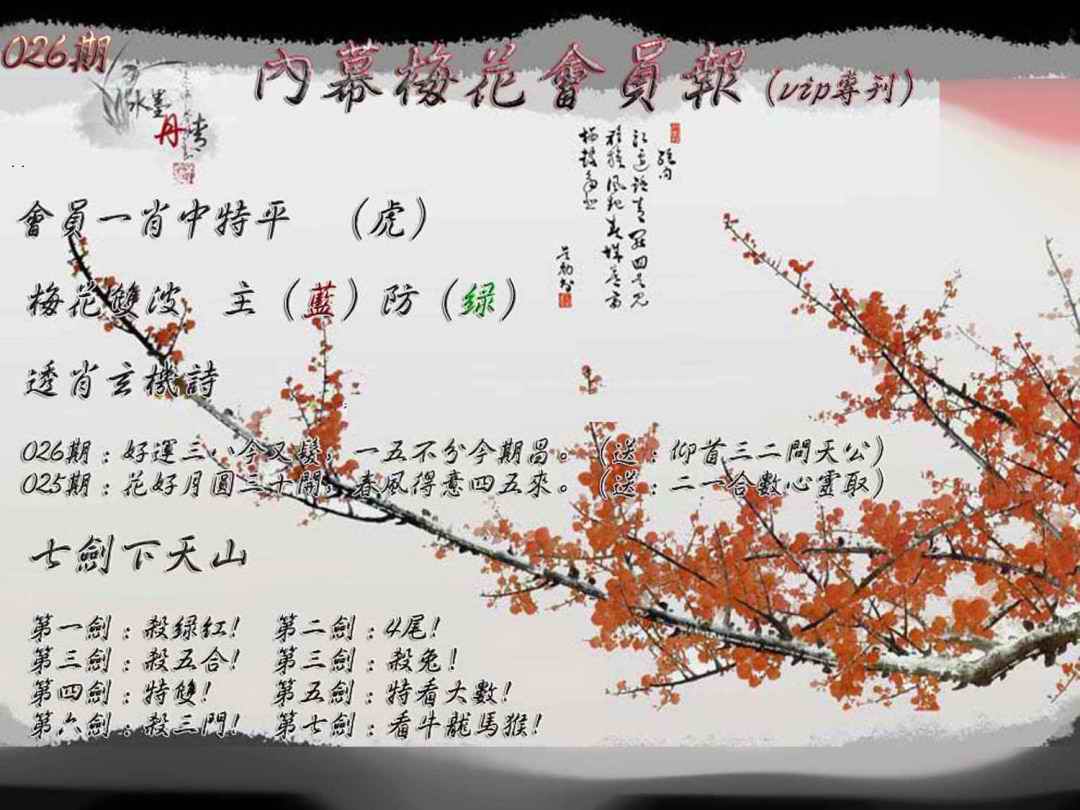 026期
內幕梅花會員報（vip專刊）
水墨
丹青
會員一肖中特平 （虎）
梅花雙波 主（藍）防（绿）
透肖玄機詩
026期：好運三八今又發，一五不分今期昌。（送：仰首三二問天公）
025期：花好月圓三十開，春風得意四五來。（送：二一合數心靈取）
七劍下天山
第一劍：殺绿紅！ 第二劍：4尾！
第三劍：殺五合！ 第三劍：殺兔！
第四劍：特雙！ 第五劍：特看大數！
第六劍：殺三門！ 第七劍：看牛龍馬猴！